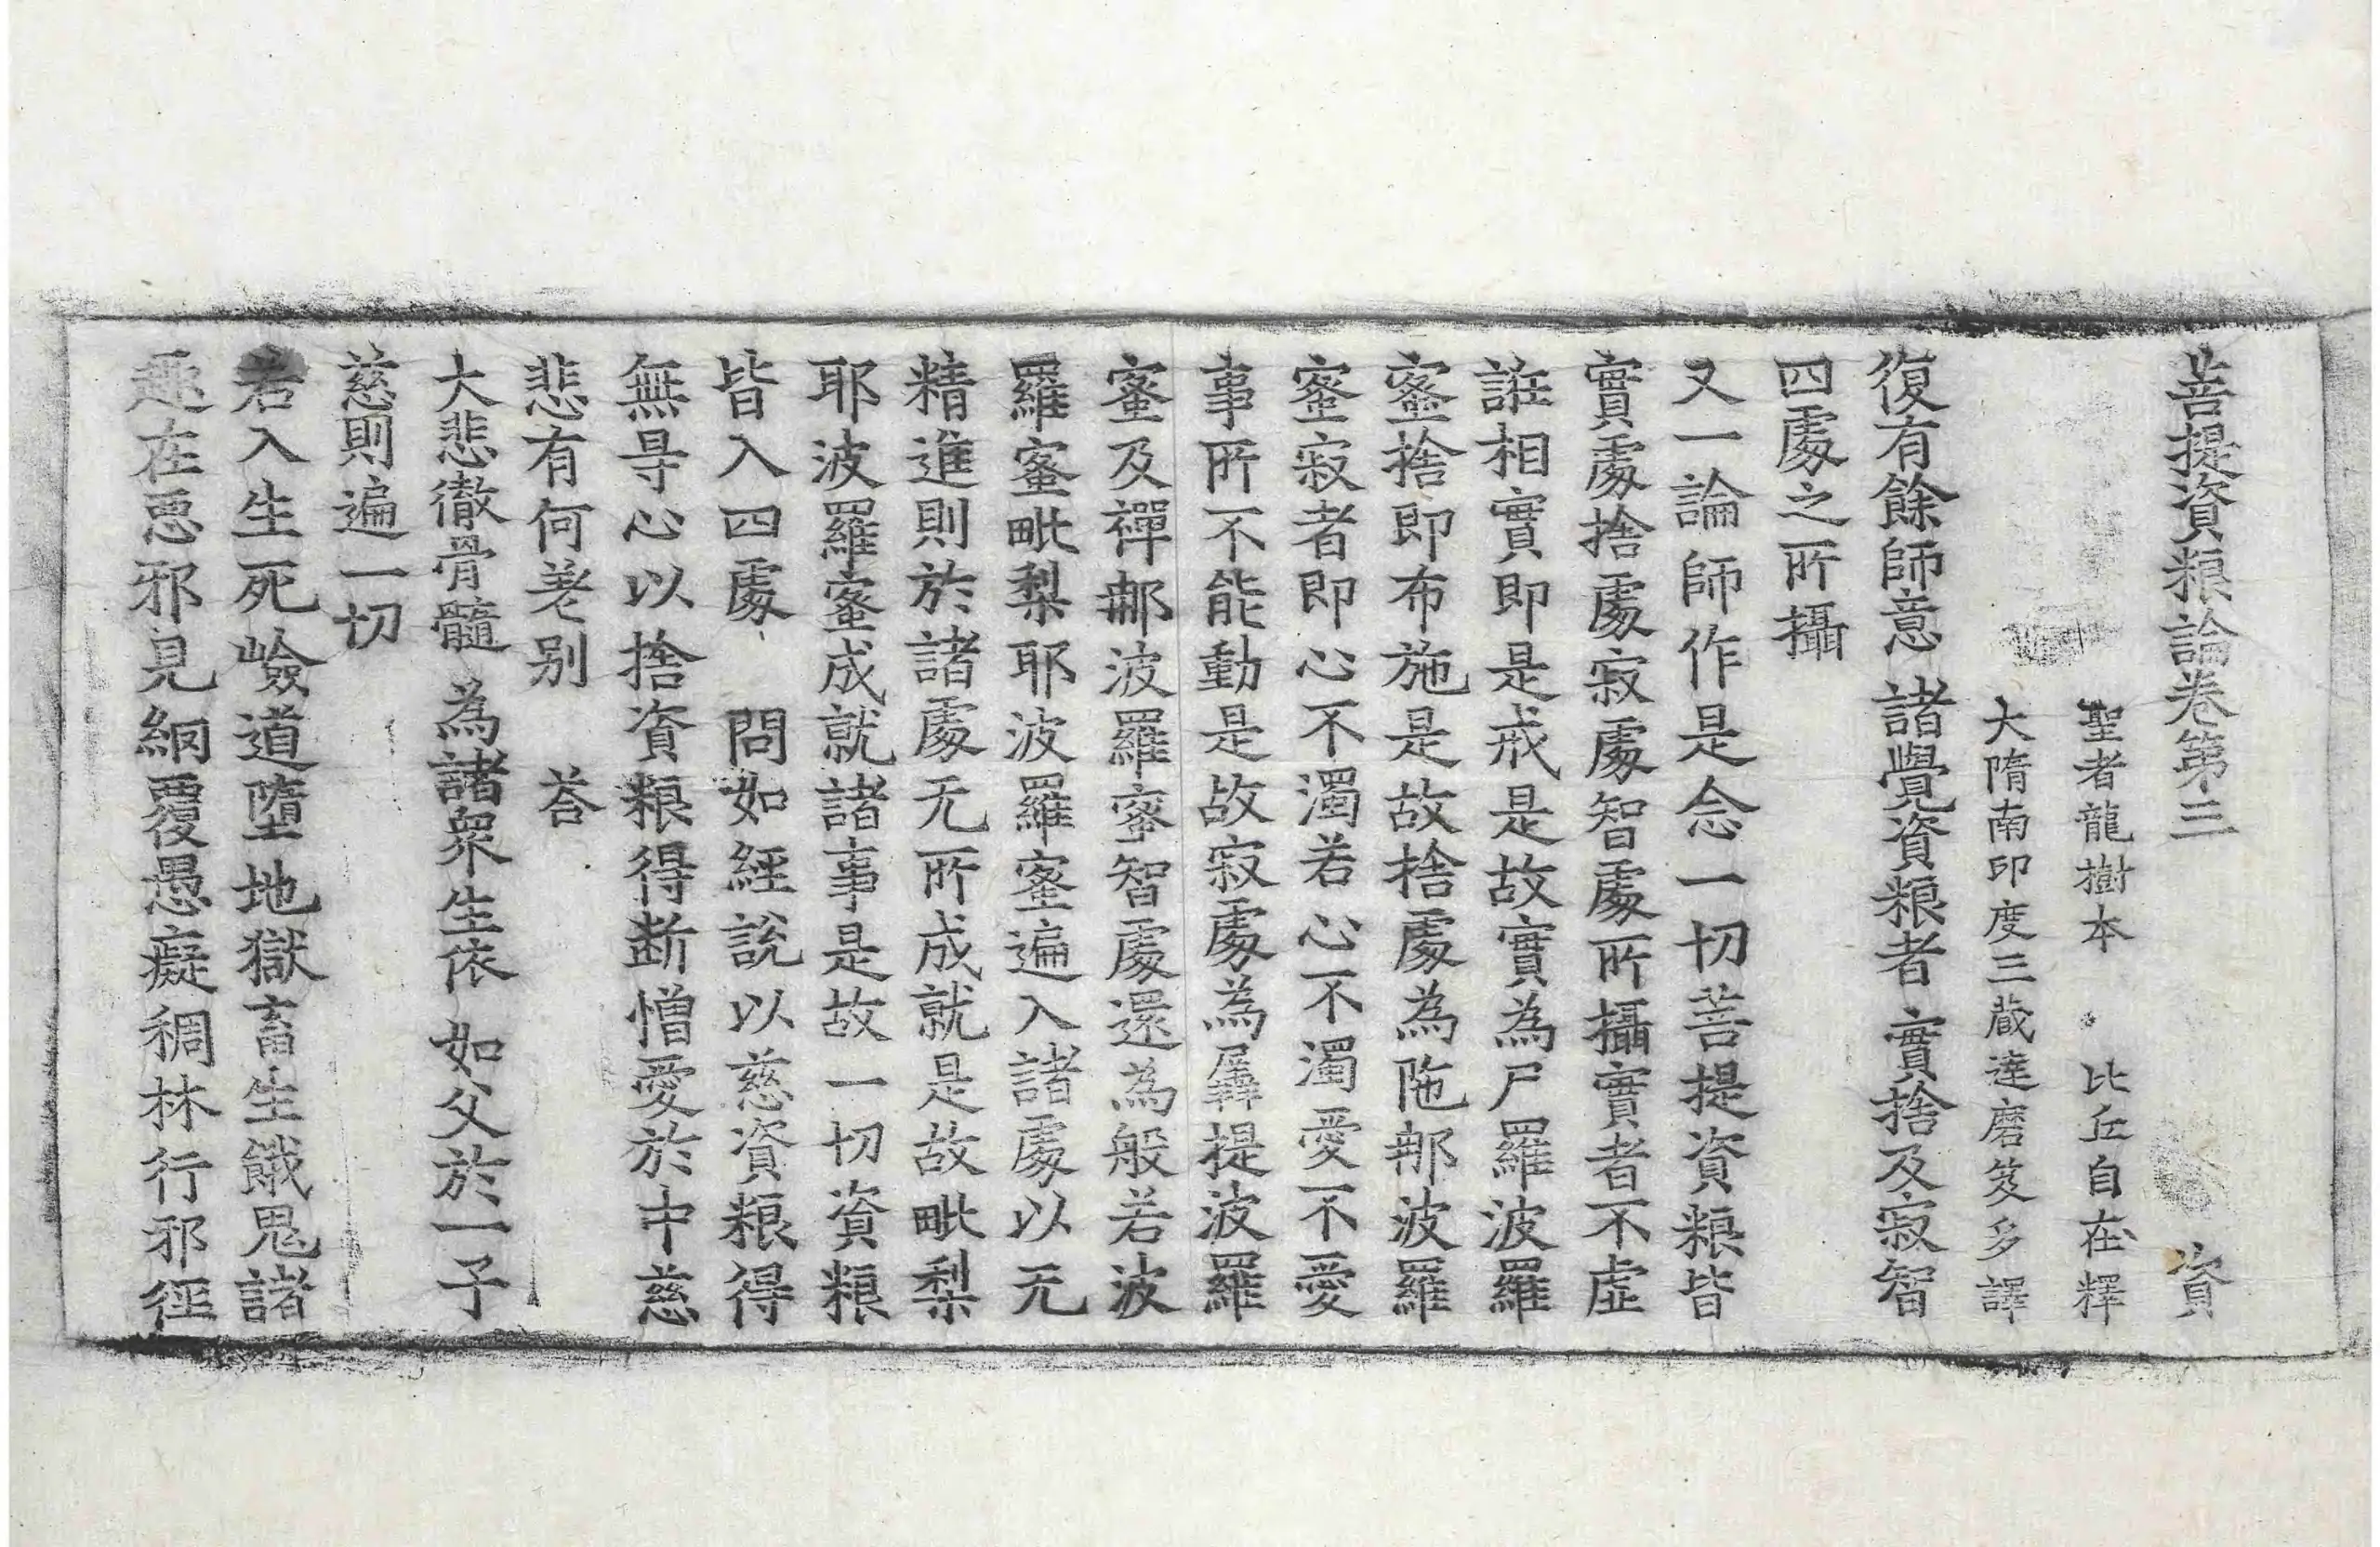 菩提資粮論卷第三　資
聖者龍樹本　比丘自在釋
大隋南印度三蔵達磨笈多譯
復有餘師意　諸覺資粮者　實捨及寂智
四處之所攝
又一論師作是念一切菩提資粮皆
實處捨處寂處智處所攝實者不虛
誑相實即是戒是故實為尸羅波羅
蜜捨即布施是故捨處為陁那波羅
蜜寂者即心不濁若心不濁愛不愛
事所不能動是故寂處為羼提波羅
蜜及禪那波羅蜜智處還為般若波
羅蜜毗梨耶波羅蜜遍入諸處以无
精進則於諸處无所成就是故毗梨
耶波羅蜜成就諸事是故一切資粮
皆入四處　問如經說以慈資粮得
無㝵心以捨資粮得断憎愛於中慈
悲有何差别　荅
大悲徹骨髓　為諸衆生依　如父於一子
慈則遍一切
若入生死嶮道墮地獄畜生餓鬼諸
趣在惡邪見網覆愚癡稠林行邪徑